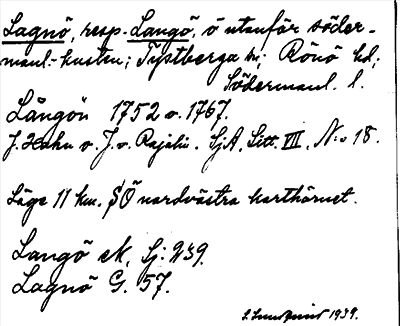 Lagnö, resp. Langö, ö utanför söder-
manl.-kusten; Tystberga sn; Rönö hd;
Södermanl. l.
Långön 1752 o. 1767.
J. Hahn o. J. v. Rajalin. SjA, Litt. VII, N:o 18.
Läge 11 km. SÖ nordvästra karthörnet.
Langö ek. Sj: 239.
Lagnö G. 57.
1939.